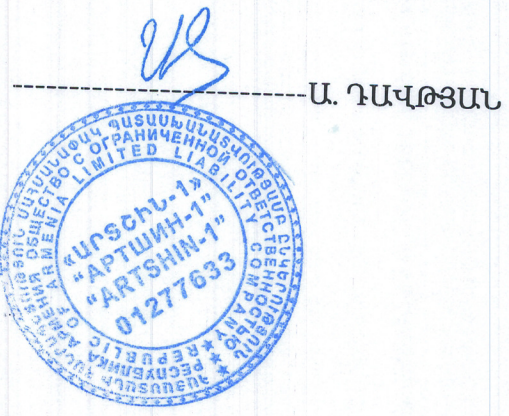 Ա. ԴԱՎԹՅԱՆ
ՀԱՅԱՍՏԱՆԻ ՀԱՆՐԱՊԵՏՈՒԹՅՈՒՆ ՍԱՀՄԱՆԱՓԱԿ ՊԱՏԱՍԽԱՆԱՏՎՈՒԹՅԱՄԲ ԸՆԿԵՐՈՒԹՅՈՒՆ
РЕСПУБЛИКА АРМЕНИЯ ОБЩЕСТВО С ОГРАНИЧЕННОЙ ОТВЕТСТВЕННОСТЬЮ
REPUBLIC OF ARMENIA LIMITED LIABILITY COMPANY
«ԱՐՏՇԻՆ-1»
"АРТШИН-1"
"ARTSHIN-1"
01277633